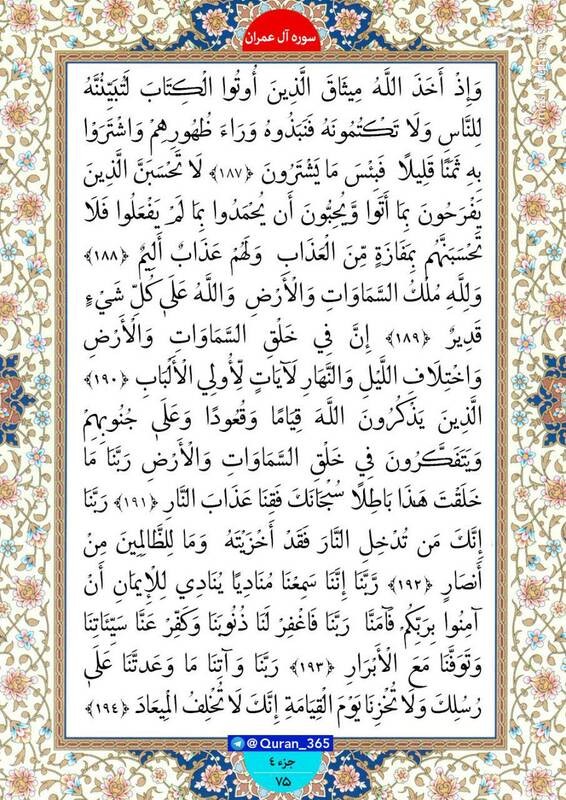 سوره آل عمران
وَإِذْ أَخَذَ اللَّهُ مِيثَاقَ الَّذِينَ أُوتُوا الْكِتَابَ لَتُبَيِّنُنَّهُ
لِلنَّاسِ وَلَا تَكْتُمُونَهُ فَنَبَذُوهُ وَرَاءَ ظُهُورِهِمْ وَاشْتَرَوْا
بِهِ ثَمَنًا قَلِيلًا فَبِئْسَ مَا يَشْتَرُونَ ﴿١٨٧﴾ لَا تَحْسَبَنَّ الَّذِينَ
يَفْرَحُونَ بِمَا أَتَوا وَّيُحِبُّونَ أَن يُحْمَدُوا بِمَا لَمْ يَفْعَلُوا فَلَا
تَحْسَبَنَّهُم بِمَفَازَةٍ مِّنَ الْعَذَابِ وَلَهُمْ عَذَابٌ أَلِيمٌ ﴿١٨٨﴾
وَلِلَّهِ مُلْكُ السَّمَاوَاتِ وَالْأَرْضِ وَاللَّهُ عَلَىٰ كُلِّ شَيْءٍ
قَدِيرٌ ﴿١٨٩﴾ إِنَّ فِي خَلْقِ السَّمَاوَاتِ وَالْأَرْضِ
وَاخْتِلَافِ اللَّيْلِ وَالنَّهَارِ لَآيَاتٍ لِّأُولِي الْأَلْبَابِ ﴿١٩٠﴾
الَّذِينَ يَذْكُرُونَ اللَّهَ قِيَامًا وَقُعُودًا وَعَلَىٰ جُنُوبِهِمْ
وَيَتَفَكَّرُونَ فِي خَلْقِ السَّمَاوَاتِ وَالْأَرْضِ رَبَّنَا مَا
خَلَقْتَ هَٰذَا بَاطِلًا سُبْحَانَكَ فَقِنَا عَذَابَ النَّارِ ﴿١٩١﴾ رَبَّنَا
إِنَّكَ مَن تُدْخِلِ النَّارَ فَقَدْ أَخْزَيْتَهُ وَمَا لِلظَّالِمِينَ مِنْ
أَنصَارٍ ﴿١٩٢﴾ رَّبَّنَا إِنَّنَا سَمِعْنَا مُنَادِيًا يُنَادِي لِلْإِيمَانِ أَنْ
آمِنُوا بِرَبِّكُمْ فَآمَنَّا رَبَّنَا فَاغْفِرْ لَنَا ذُنُوبَنَا وَكَفِّرْ عَنَّا سَيِّئَاتِنَا
وَتَوَفَّنَا مَعَ الْأَبْرَارِ ﴿١٩٣﴾ رَبَّنَا وَآتِنَا مَا وَعَدتَّنَا عَلَىٰ
رُسُلِكَ وَلَا تُخْزِنَا يَوْمَ الْقِيَامَةِ إِنَّكَ لَا تُخْلِفُ الْمِيعَادَ ﴿١٩٤﴾
@Quran_365
جزء ٤
۷۵